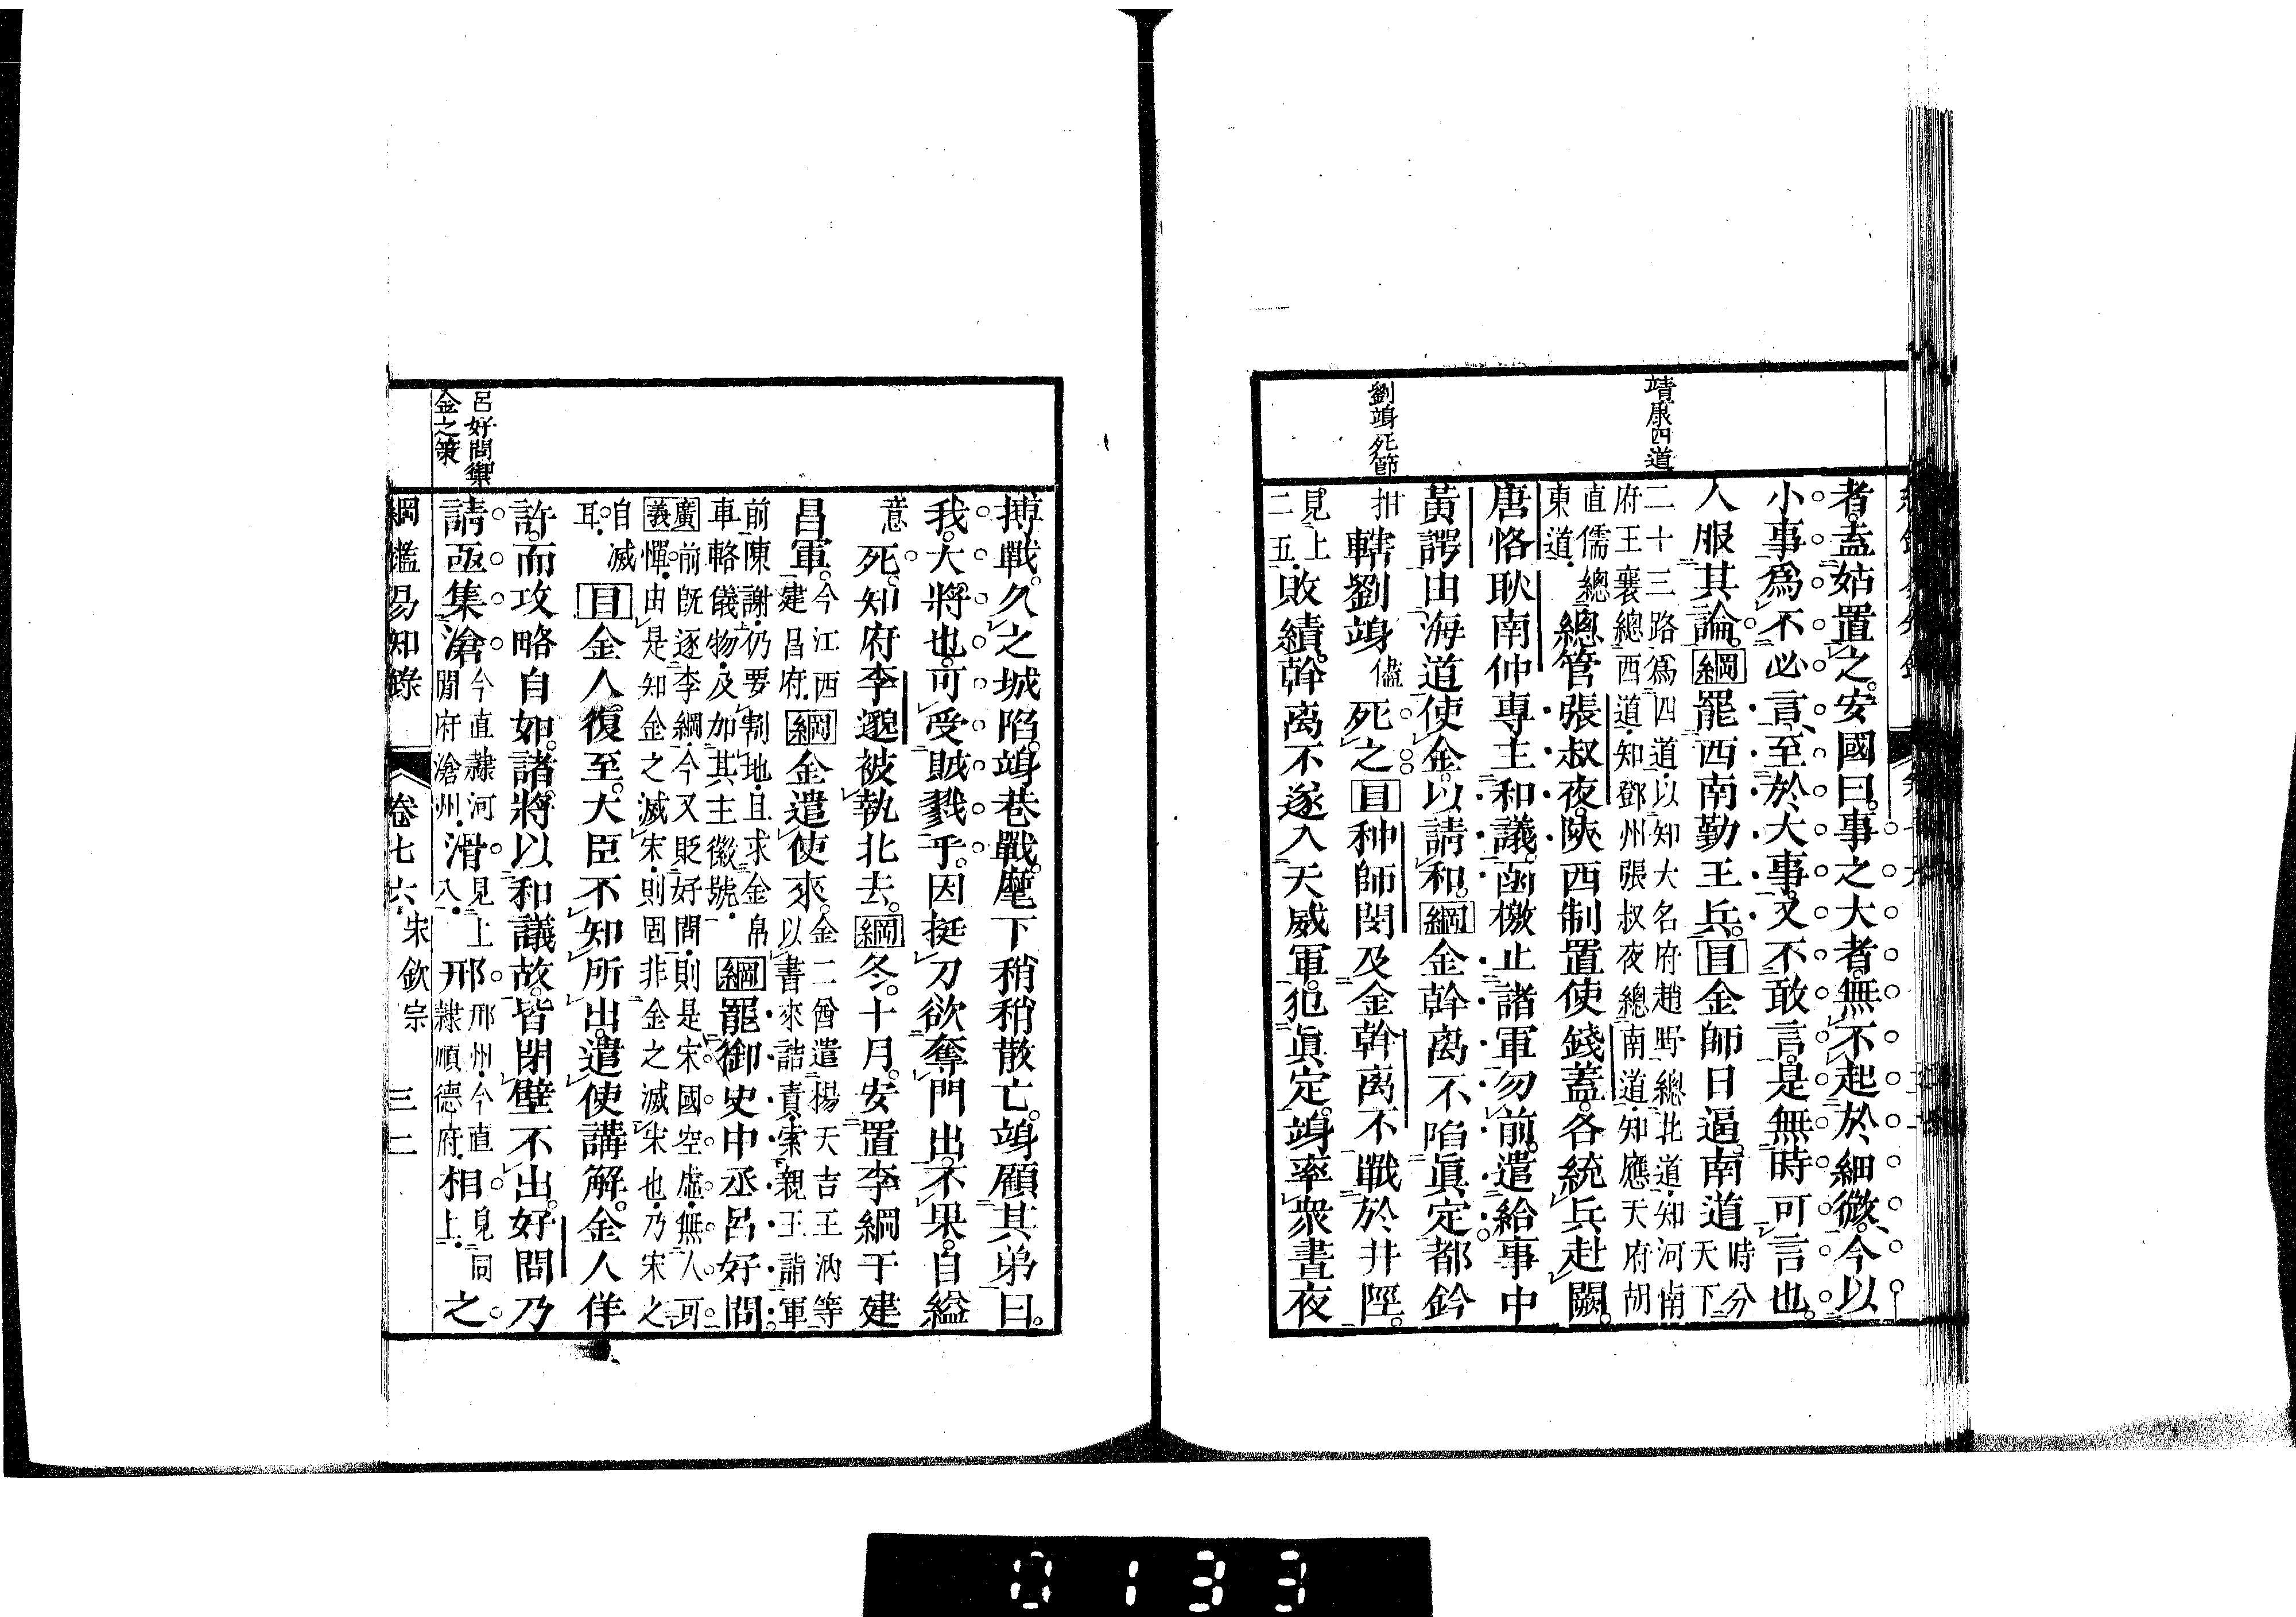 靖康四道
劉竧死節
者。盍姑置之。安國曰。事之大者。無不起於細微、今以
小事爲不必言、至於大事、又不敢言。是無時可言也。
人服其論。綱罷西南勤王兵。目金師日逼。南道時分天下
二十三路爲四道、以知大名府趙野總北道、知河南
府王襄總西道、知鄧州張叔夜總南道、知應天府胡
直儒總東道。總管張叔夜。陝西制置使錢蓋。各統兵赴闕。
唐恪耿南仲專主和議。函檄止諸軍勿前。遣給事中
黃諤由海道使金。以請和。綱金斡离不陷眞定。都鈐
拑轄劉竧儘死之目种師閔及金斡离不戰於井陘。
見上二五敗績。斡离不遂入天威軍。犯眞定。竧率衆晝夜
搏戰。久之城陷。竧巷戰。麾下稍稍散亡。竧顧其弟曰。
我。大將也。可受賊戮乎。因挺刀欲奪門出。不果。自縊
意死。知府李邈被執北去。綱冬。十月。安置李綱于建
昌軍。今江西建昌府綱金遣使來。金二酋遣楊天吉王汭等以書來詰責、索親王詣軍
前陳謝、仍要割地、且求金帛車輅儀物、及加其主徽號。綱罷御史中丞呂好問。
廣義前旣逐李綱、今又貶好問、則是宋國空虛、無人可憚。由是知金之滅宋、則固非金之滅宋也、乃宋之
自滅耳。目金人復至。大臣不知所出。遣使講解。金人佯
許。而攻略自如。諸將以和議故。皆閉壁不出。好問乃
請亟集滄今直隸河閒府滄州。滑見上八。邢邢州、今直隸順德府。相見同上。之
呂好問禦
金之策
綱鑑易知錄
卷七六
宋欽宗
三二
0133